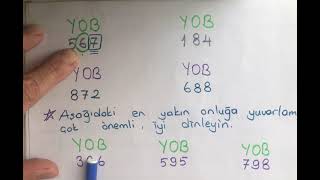 YOB YOB
567 184
YOB YOB
872 688
Aşağıdaki en yakın onluğa yuvarlam
çok önemli, iyi dinleyin.
YOB YOB YOB
595 798